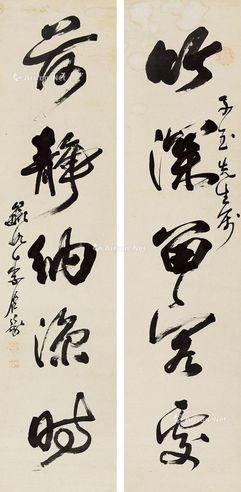 竹深留客處
子玉先生屬
荷靜納涼時